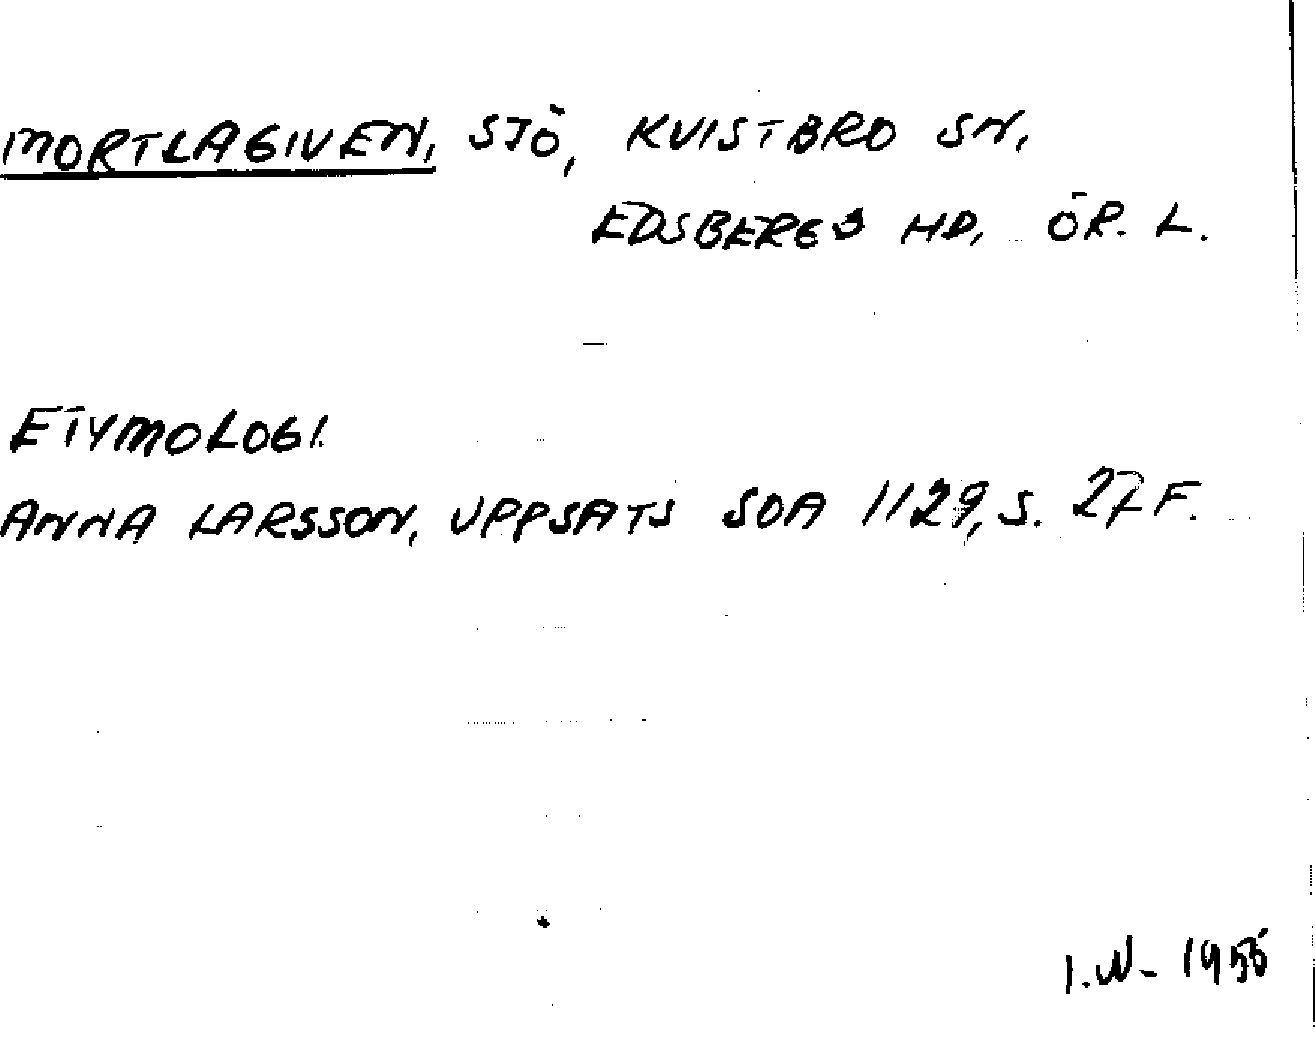 MORTLAGIVEN, SJÖ, KVISTBRO SN,
EDSBERGS HD, ÖR. L.
ETYMOLOGI.
ANNA LARSSON, UPPSATS SOA 1129, S. 27 F.
I.N- 1955